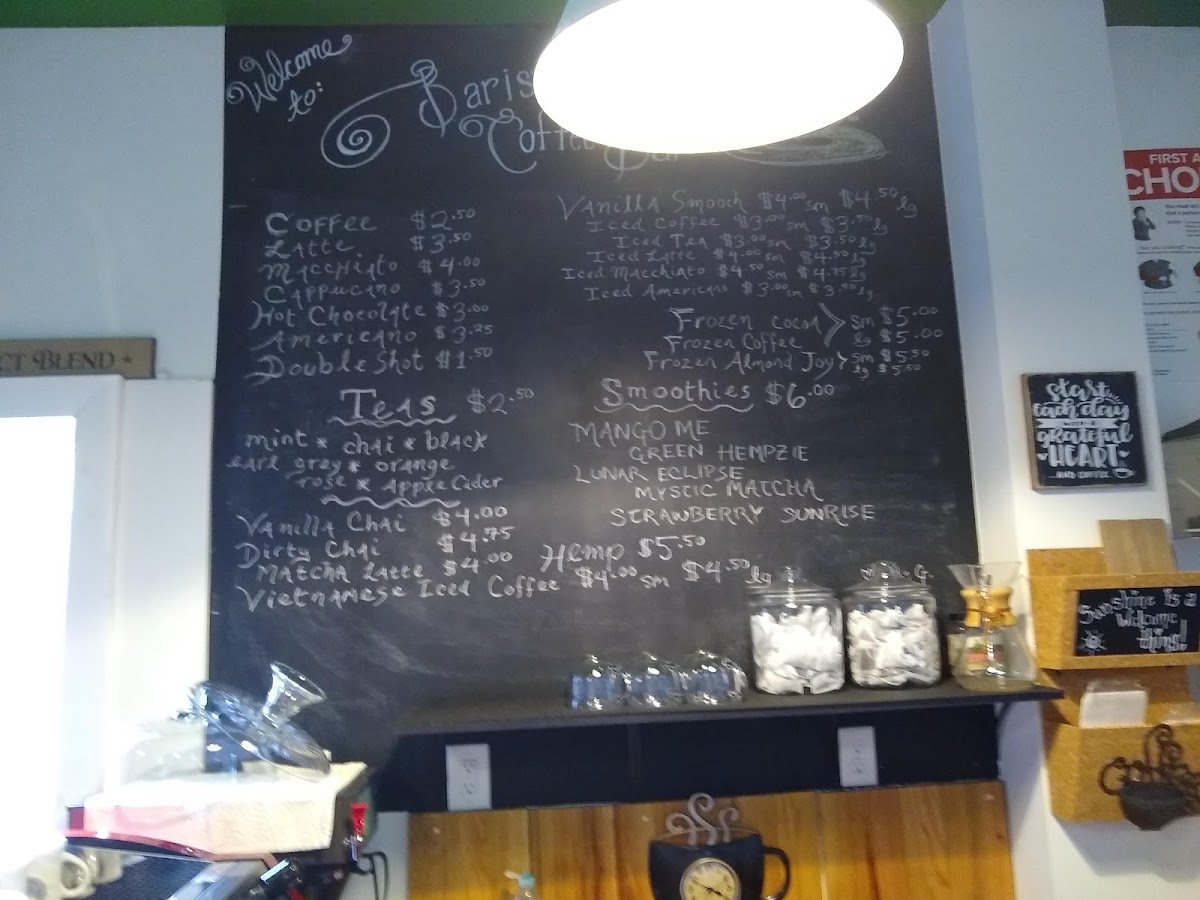 Welcome
to:
Coffee Bar
Coffee $2.50
Latte $3.50
Macchiato $4.00
Cappucano $3.50
Hot Chocolate $3.00
Americano $3.25
Double Shot $1.50
Teas $2.50
mint * chai * black
earl grey * orange
rose * Apple Cider
Vanilla Chai $4.00
Dirty Chai $4.75
Matcha Latte $4.00
Vietnamese Iced Coffee $4.00 sm $4.50 lg
Vanilla Smooch $4.00 sm $4.50 lg
Iced Coffee $3.00 sm $3.50 lg
Iced Tea $3.00 sm $3.50 lg
Iced Latte $4.00 sm $4.50 lg
Iced Macchiato $4.50 sm $4.75 lg
Iced Americano $3.00 sm $3.50 lg
Frozen Cocoa > sm $5.00
Frozen Coffee lg $5.00
Frozen Almond Joy > sm $5.50
lg $5.50
Smoothies $6.00
MANGO ME
GREEN HEMPZIE
LUNAR ECLIPSE
MYSTIC MATCHA
STRAWBERRY SUNRISE
Hemp $5.50
CT BLEND
FIRST A
CHO
start
each day
with a
grateful
HEART
...AND COFFEE
Sunshine is a
Welcome
thing!